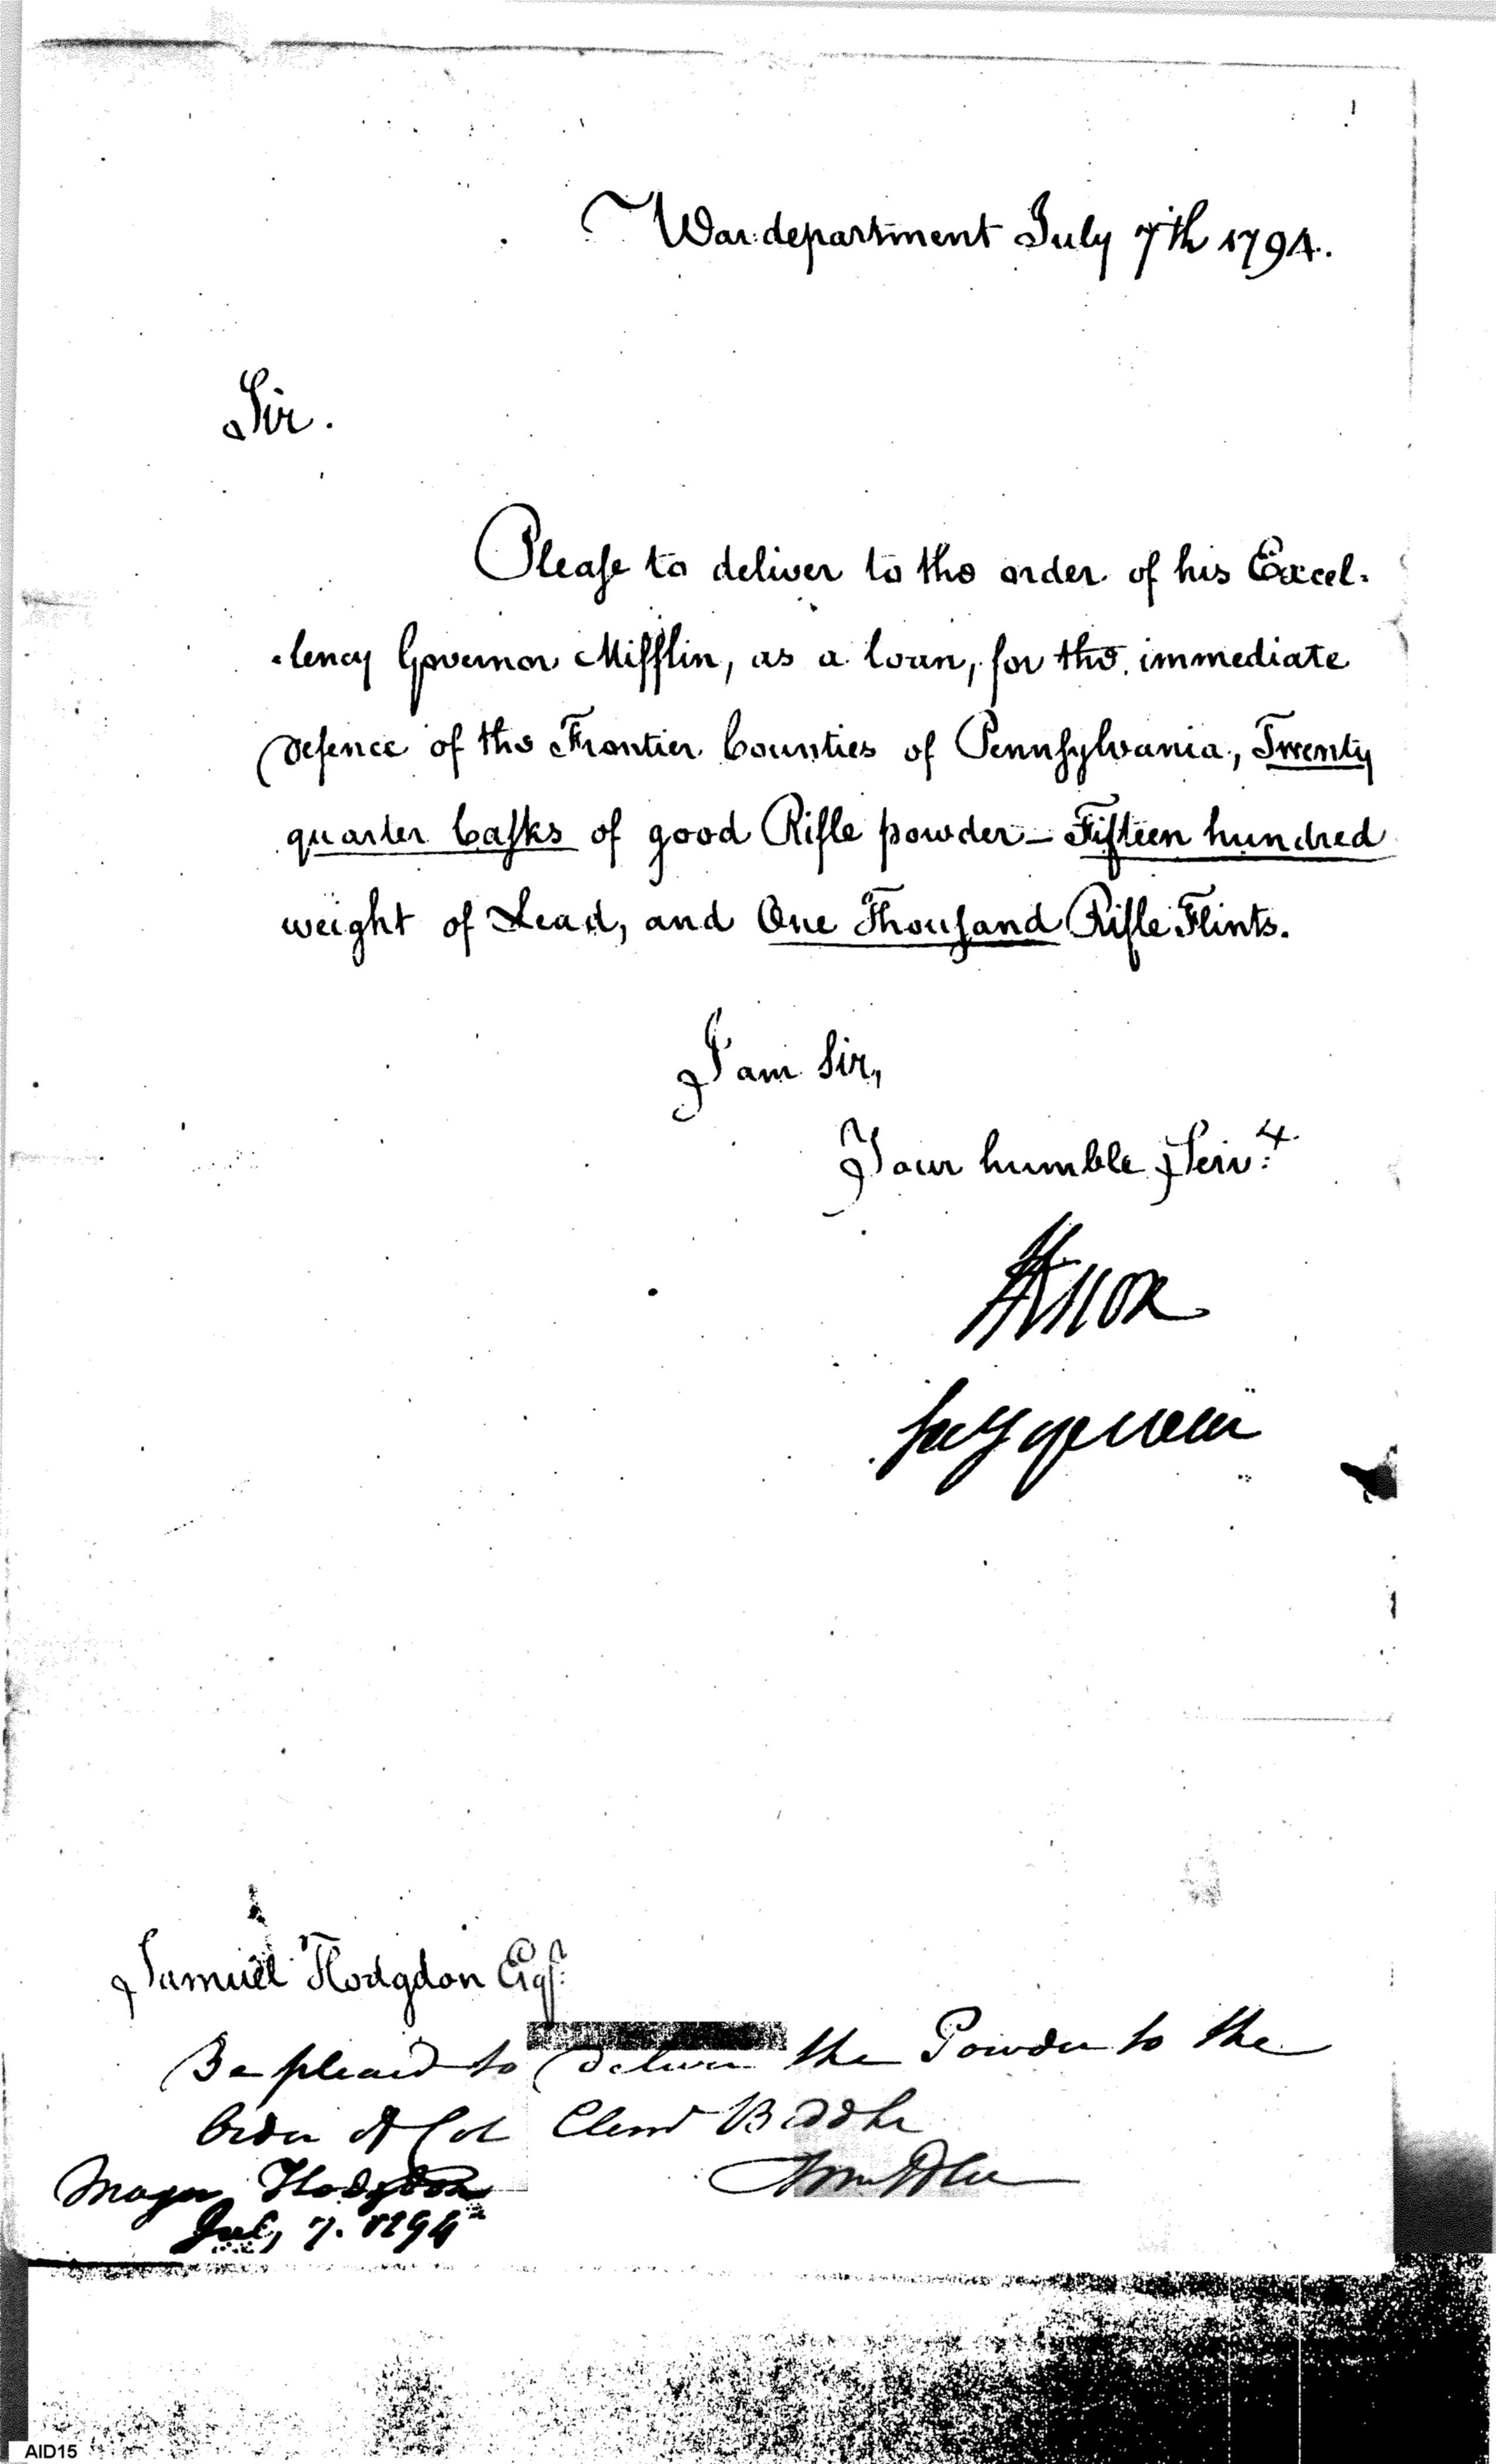 War department July 7th 1794.
Sir.
Please to deliver to the order of his Excel-
-lency Governor Mifflin, as a loan, for the immediate
defence of the Frontier Counties of Pennsylvania, Twenty
quarter Casks of good Rifle powder – Fifteen hundred
weight of Lead, and One Thousand Rifle Flints.
I am Sir,
Your humble Servt.
HKnox
secy of war
Samuel Hodgdon Esqr.
Be pleased to deliver the Powder to the
Order of Col Clemt Biddle
Major Hodgdon
July 7. 1794
AID15